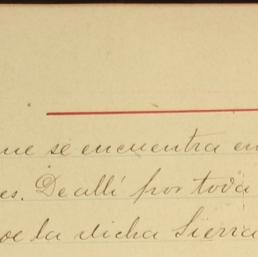 ue se encuentra en
es. De allí por toda
de la dicha Sierra